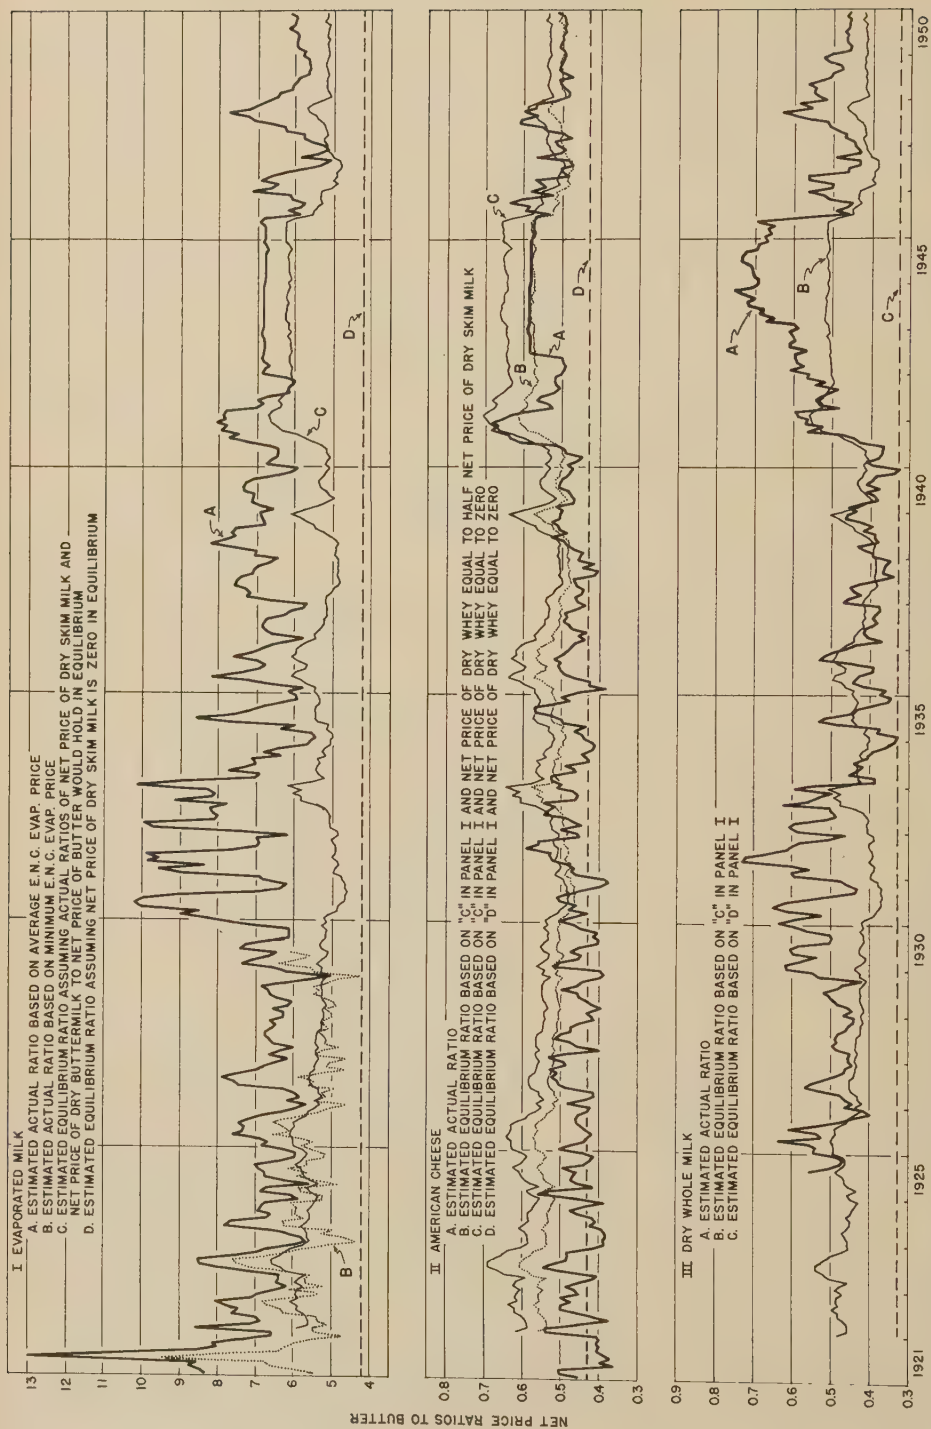 NET PRICE RATIOS TO BUTTER
I EVAPORATED MILK
A. ESTIMATED ACTUAL RATIO BASED ON AVERAGE E.N.C. EVAP. PRICE
B. ESTIMATED ACTUAL RATIO BASED ON MINIMUM E.N.C. EVAP. PRICE
C. ESTIMATED EQUILIBRIUM RATIO ASSUMING ACTUAL RATIOS OF NET PRICE OF DRY SKIM MILK AND
NET PRICE OF DRY BUTTERMILK TO NET PRICE OF BUTTER WOULD HOLD IN EQUILIBRIUM
D. ESTIMATED EQUILIBRIUM RATIO ASSUMING NET PRICE OF DRY SKIM MILK IS ZERO IN EQUILIBRIUM
13
12
11
10
9
8
7
6
5
4
A
B
C
D
II AMERICAN CHEESE
A. ESTIMATED ACTUAL RATIO
B. ESTIMATED EQUILIBRIUM RATIO BASED ON "C" IN PANEL I AND NET PRICE OF DRY WHEY EQUAL TO HALF NET PRICE OF DRY SKIM MILK
C. ESTIMATED EQUILIBRIUM RATIO BASED ON "C" IN PANEL I AND NET PRICE OF DRY WHEY EQUAL TO ZERO
D. ESTIMATED EQUILIBRIUM RATIO BASED ON "D" IN PANEL I AND NET PRICE OF DRY WHEY EQUAL TO ZERO
0.8
0.7
0.6
0.5
0.4
0.3
B
A
C
D
III DRY WHOLE MILK
A. ESTIMATED ACTUAL RATIO
B. ESTIMATED EQUILIBRIUM RATIO BASED ON "C" IN PANEL I
C. ESTIMATED EQUILIBRIUM RATIO BASED ON "D" IN PANEL I
0.9
0.8
0.7
0.6
0.5
0.4
0.3
A
B
C
1921
1925
1930
1935
1940
1945
1950